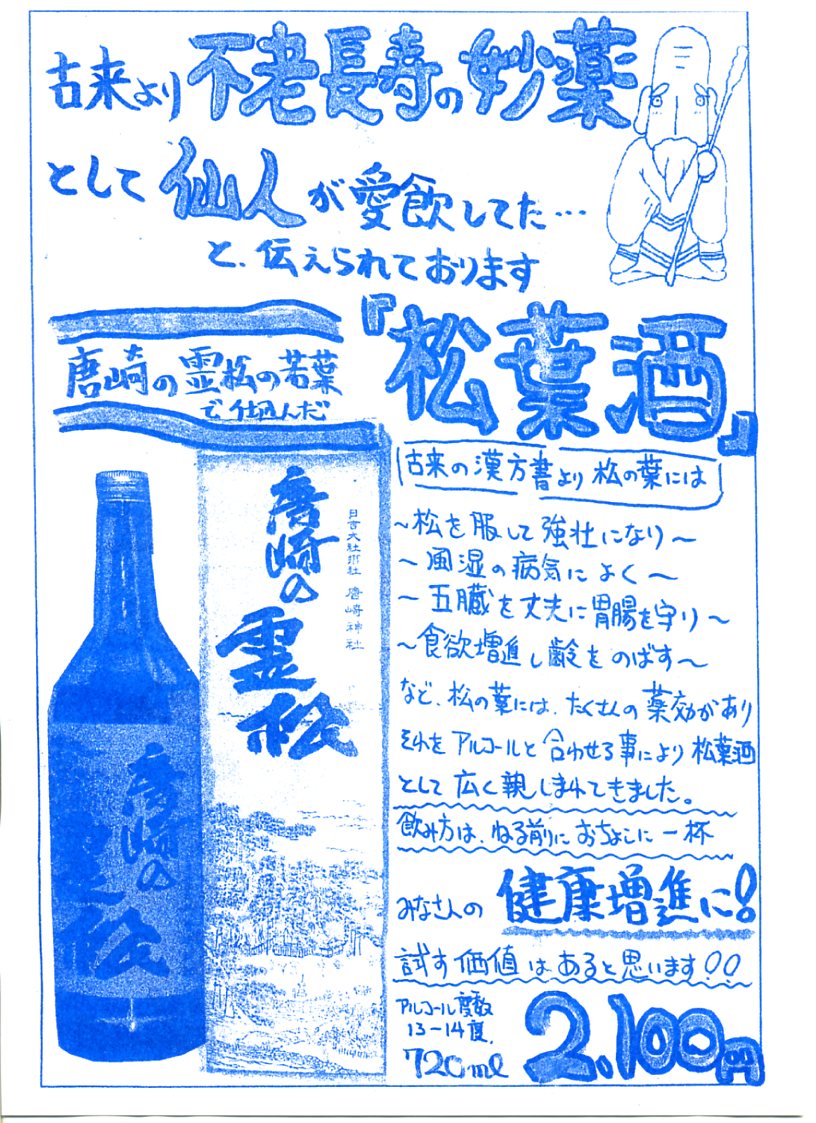 古来より不老長寿の妙薬
として仙人が愛飲してた…
と、伝えられております
唐崎の霊松の若葉
で仕込んだ
『松葉酒』
古来の漢方書より松の葉には
〜松を服して強壮になり〜
〜風湿の病気によく〜
〜五臓を丈夫に胃腸を守り〜
〜食欲増進し齢をのばす〜
など、松の葉には、たくさんの薬効があり
それをアルコールと合わせる事により松葉酒
として広く親しまれてきました。
飲み方は、ねる前におちょこに一杯
みなさんの健康増進に!
試す価値はあると思います!!
アルコール度数
13-14度
720ml
2,100円
唐崎の
霊松
日吉大社摂社 唐崎神社
唐崎の
霊松